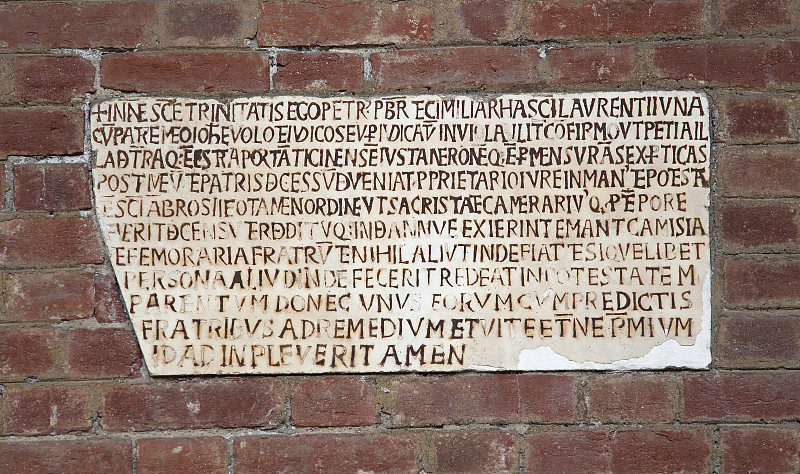 +INNESCETRINITATISEGOPETR·PBRECIMILIARHASCILAVRENTIIVNA
CVPATREMEOIOHEVOLOETVDICOSEVPIVDICATVINVIOLAJLITCOFIRMOVTPETIAIL
LADTRAQEESTRAPORTATICINENSEIVSTANERONEQEPMENSVRASEXPTICAS
POSTMEVEPATRISDCESSVDVENIATPPRIETARIOIVREINMANEPOESTA
ESCIABROSIIEOTAMENORDINEVTSACRISTAECAMERARIVQPEPORE
FVERITDCENSVERDDITVQINDANNVEXIERINTEMANTCAMISIA
EFEMORARIAFRATRVENIHILALIVTINDEFIATTESIQVELIBET
PERSONAALIVDINDEFECERITREDEATINPOTESTATEM
PARENTVMDONECVNVSEORVMCVMPREDICTIS
FRATRIBVSADREMEDIVMETVITEETNEPMIVM
IDADINPLEVERITAMEN